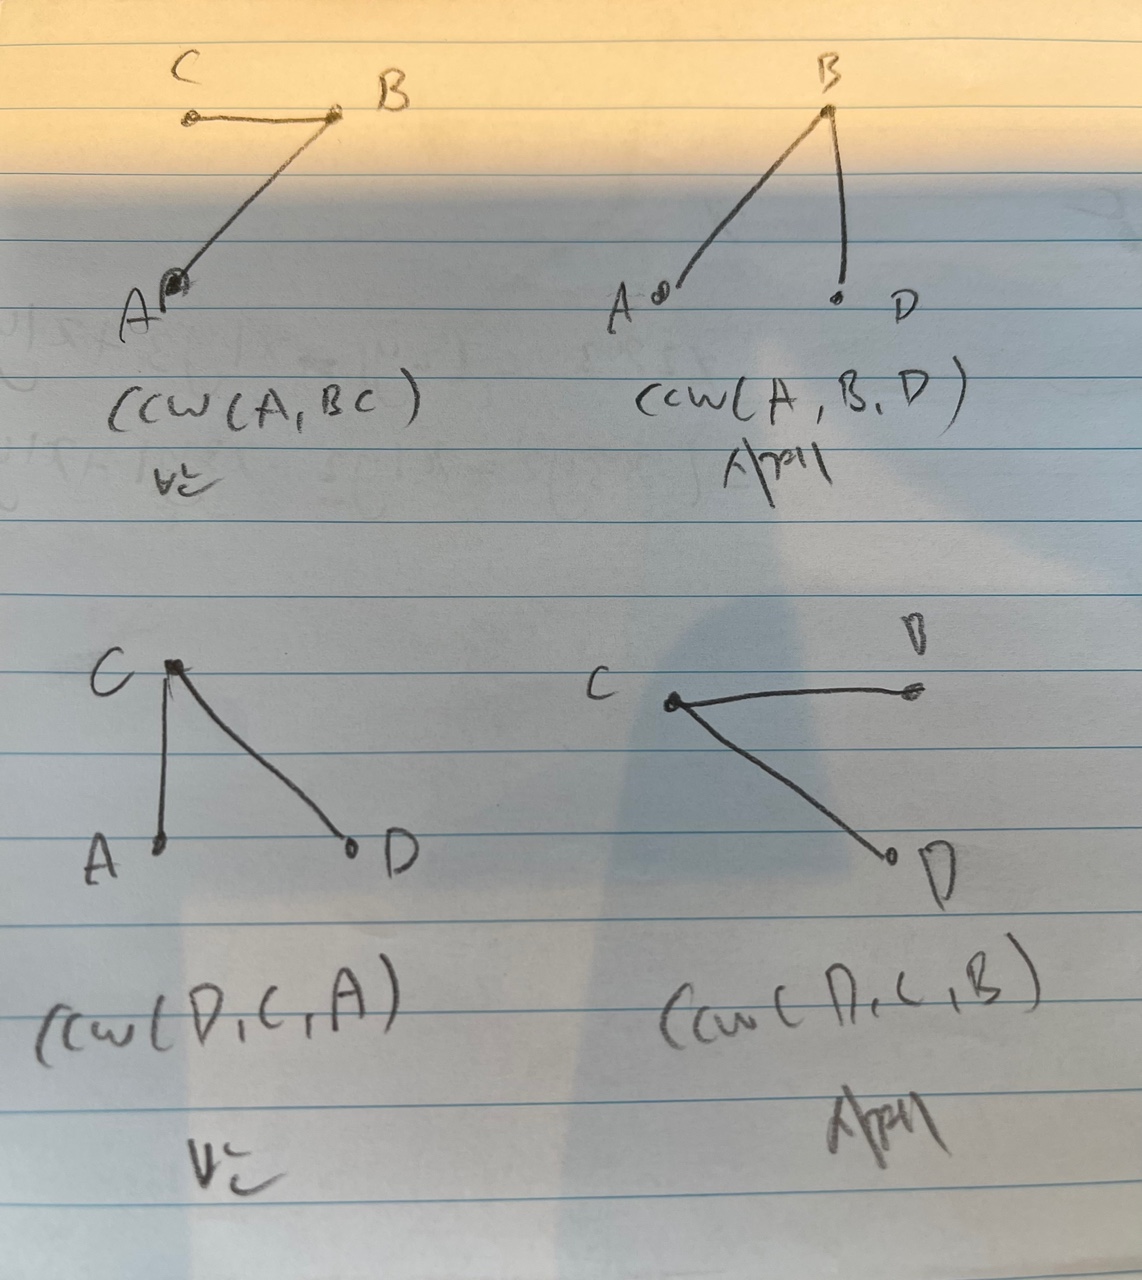 C B
A
CCW(A,BC)
B
A D
CCW(A,B,D)
C
A D
CCW(D,C,A)
C B
D
CCW(D,C,B)